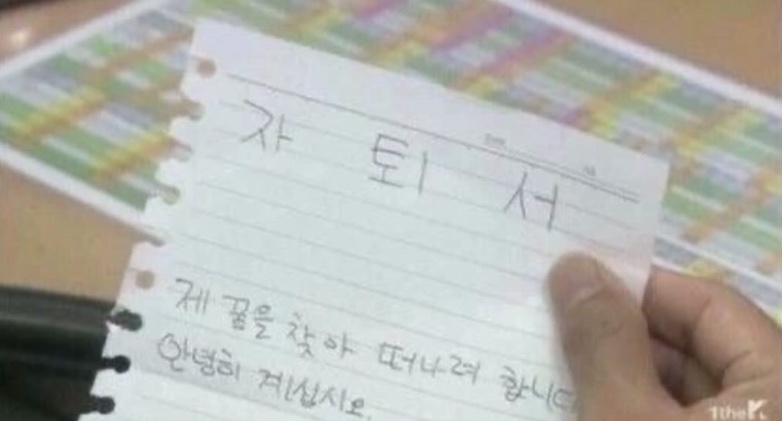 자 퇴 서
제 꿈을 찾아 떠나려 합니다
안녕히 계십시오.
1theK